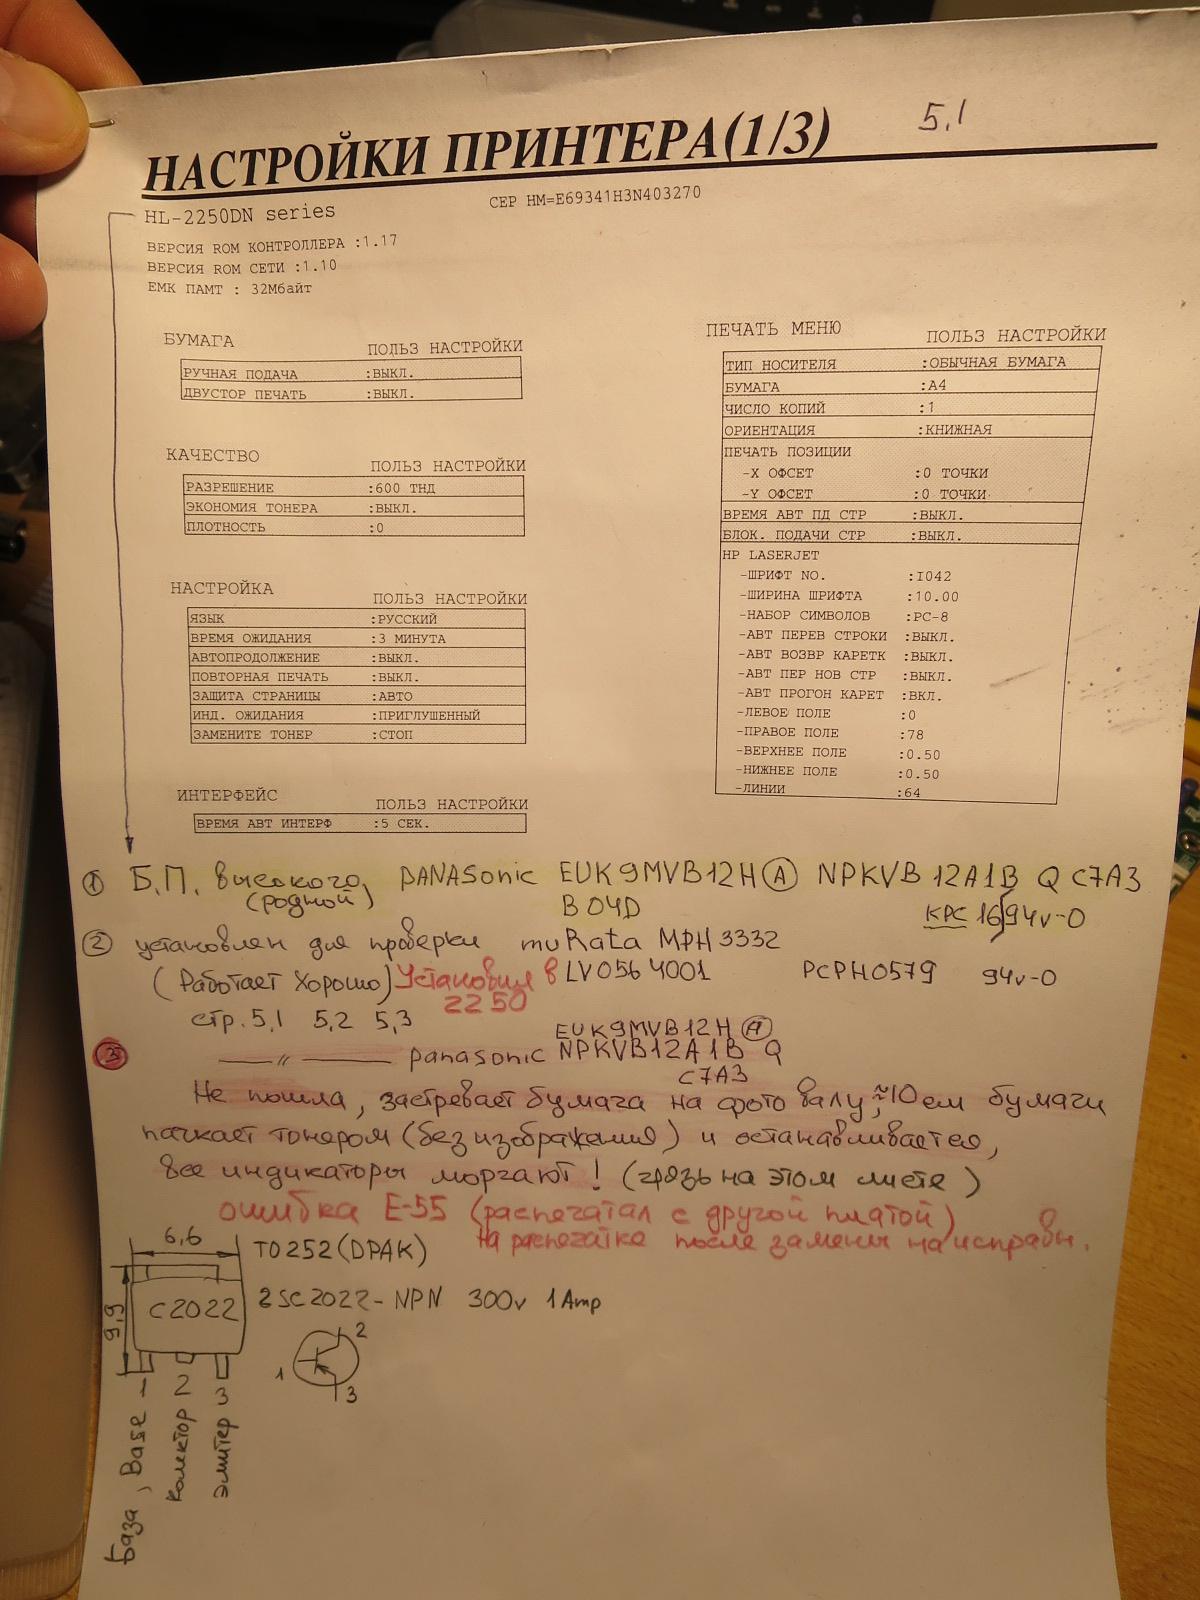 5,1
НАСТРОЙКИ ПРИНТЕРА(1/3)
HL-2250DN series
СЕР НМ=E69341H3N403270
ВЕРСИЯ ROM КОНТРОЛЛЕРА :1.17
ВЕРСИЯ ROM СЕТИ :1.10
ЕМК ПАМТ : 32Мбайт
БУМАГА
ПОЛЬЗ НАСТРОЙКИ
РУЧНАЯ ПОДАЧА :ВЫКЛ.
ДВУСТОР ПЕЧАТЬ :ВЫКЛ.
КАЧЕСТВО
ПОЛЬЗ НАСТРОЙКИ
РАЗРЕШЕНИЕ :600 ТНД
ЭКОНОМИЯ ТОНЕРА :ВЫКЛ.
ПЛОТНОСТЬ :0
НАСТРОЙКА
ПОЛЬЗ НАСТРОЙКИ
ЯЗЫК :РУССКИЙ
ВРЕМЯ ОЖИДАНИЯ :3 МИНУТА
АВТОПРОДОЛЖЕНИЕ :ВЫКЛ.
ПОВТОРНАЯ ПЕЧАТЬ :ВЫКЛ.
ЗАЩИТА СТРАНИЦЫ :АВТО
ИНД. ОЖИДАНИЯ :ПРИГЛУШЕННЫЙ
ЗАМЕНИТЕ ТОНЕР :СТОП
ИНТЕРФЕЙС
ПОЛЬЗ НАСТРОЙКИ
ВРЕМЯ АВТ ИНТЕРФ :5 СЕК.
ПЕЧАТЬ МЕНЮ
ПОЛЬЗ НАСТРОЙКИ
ТИП НОСИТЕЛЯ :ОБЫЧНАЯ БУМАГА
БУМАГА :A4
ЧИСЛО КОПИЙ :1
ОРИЕНТАЦИЯ :КНИЖНАЯ
ПЕЧАТЬ ПОЗИЦИИ
-X ОФСЕТ :0 ТОЧКИ
-Y ОФСЕТ :0 ТОЧКИ
ВРЕМЯ АВТ ПД СТР :ВЫКЛ.
БЛОК. ПОДАЧИ СТР :ВЫКЛ.
HP LASERJET
-ШРИФТ NO. :I042
-ШИРИНА ШРИФТА :10.00
-НАБОР СИМВОЛОВ :PC-8
-АВТ ПЕРЕВ СТРОКИ :ВЫКЛ.
-АВТ ВОЗВР КАРЕТК :ВЫКЛ.
-АВТ ПЕР НОВ СТР :ВЫКЛ.
-АВТ ПРОГОН КАРЕТ :ВКЛ.
-ЛЕВОЕ ПОЛЕ :0
-ПРАВОЕ ПОЛЕ :78
-ВЕРХНЕЕ ПОЛЕ :0.50
-НИЖНЕЕ ПОЛЕ :0.50
-ЛИНИИ :64
① Б.П. высокого, PANASonic EUK9MVB12H Ⓐ NPKVB 12A1B Q C7A3
(родной) B04D КРС 16 94v-0
② установлен для проверки muRata MPH3332
(Работает Хорошо) Установил в LV0564001 PCPH0579 94v-0
2250
стр. 5,1 5,2 5,3
EUK9MVB12H Ⓐ
③ —— // —— panasonic NPKVB12A1B Q
C7A3
Не пошла, застревает бумага на фото валу, ≈10см бумаги
пачкает тонером (без изображения) и останавливается,
все индикаторы моргают! (грязь на этом листе)
ошибка E-55 (распечатал с другой платой)
на распечатке после замены на исправн.
6,6
TO252 (DPAK)
9,9
C2022
2SC2022-NPN 300v 1Amp
1 2 3
1 2 3
База, Base
Колектор
эмитер